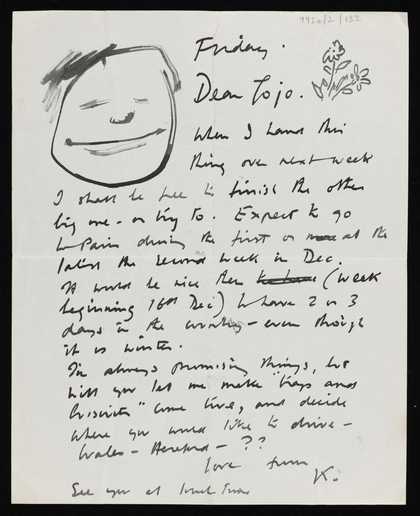 9920/2/132
Friday.
Dear Jojo.
When I hand this
thing over next week
I shall be free to finish the other
big one - or try to. Expect to go
to Paris during the first or at the
latest the second week in Dec.
It would be nice then (week
beginning 16th Dec) to have 2 or 3
days in the country - even though
it is winter.
I'm always promising things, but
will you let me make "trips and
" come true, and decide
where you would like to drive -
Wales - Hereford - ??
love from
K.
See you at